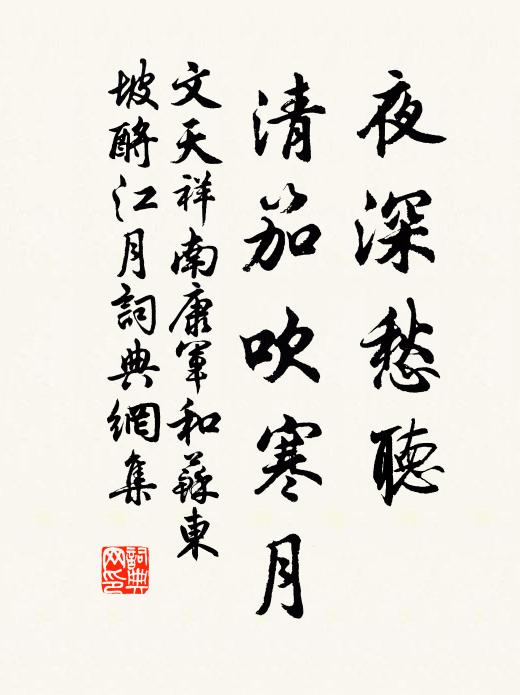 夜深愁聽
清笳吹寒月
文天祥南康軍和蘇東
坡酹江月詞典網集
詞典
网印